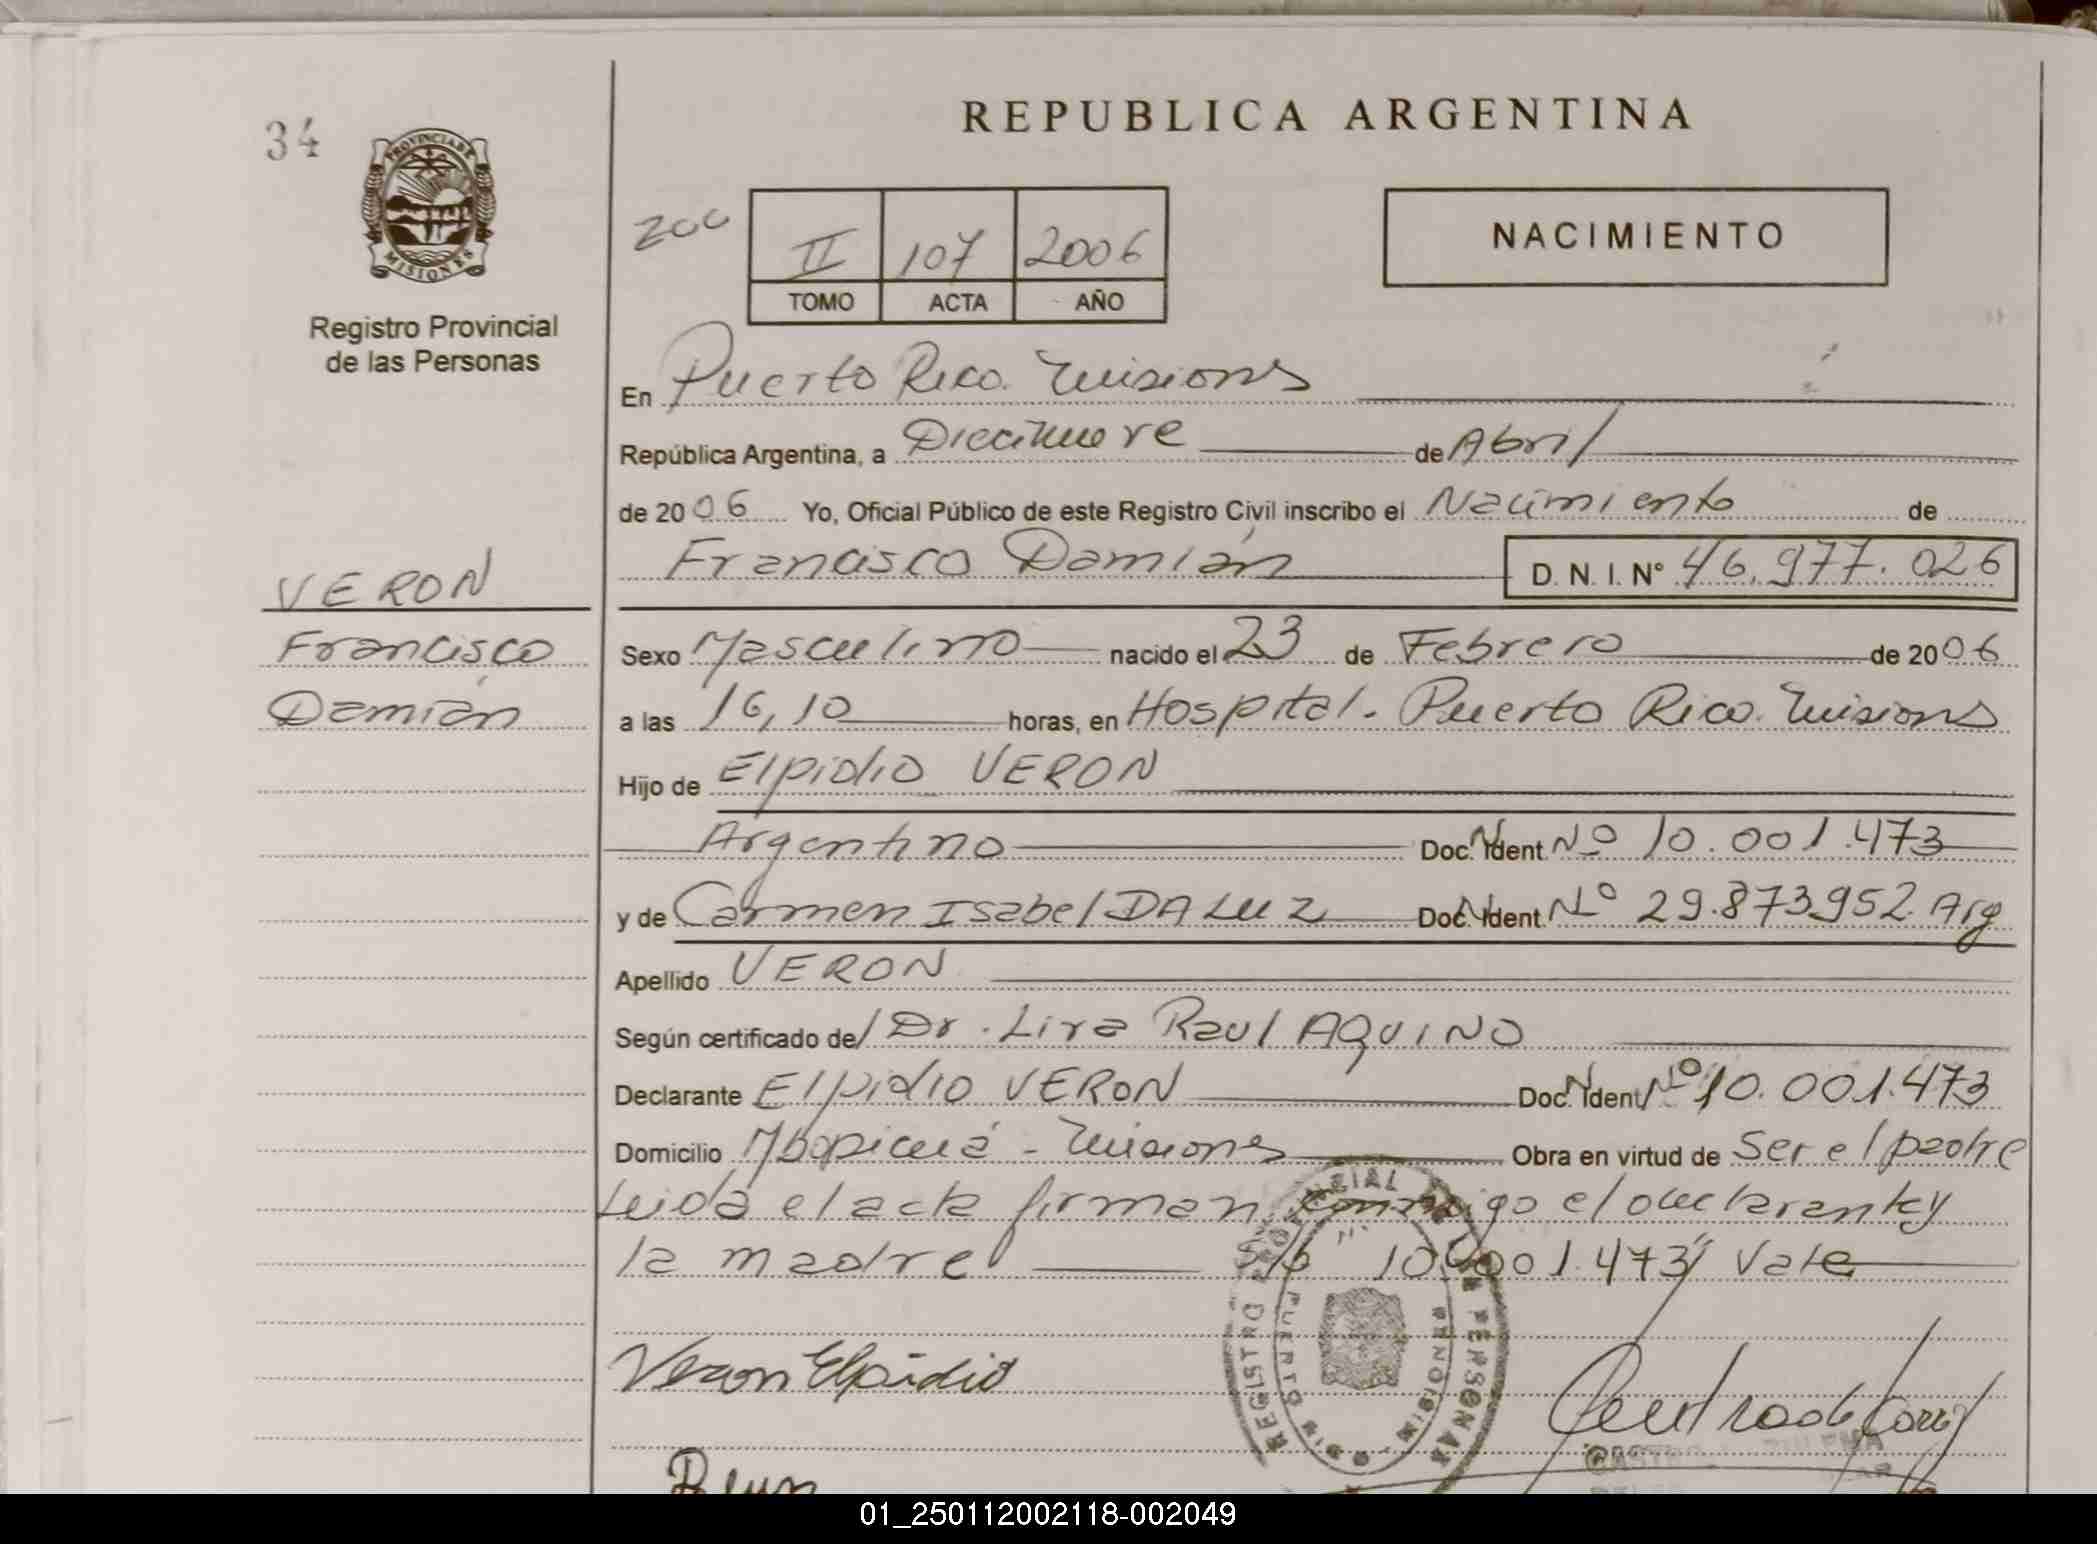 34
PROVINCIA DE
MISIONES
Registro Provincial
de las Personas
REPUBLICA ARGENTINA
200
II 107 2006
TOMO ACTA AÑO
NACIMIENTO
En Puerto Rico. Misiones
República Argentina, a Diecinueve de Abril
de 2006 Yo, Oficial Público de este Registro Civil inscribo el Nacimiento de
Francisco Damián D. N. I. Nº 46.977.026
VERON
Francisco
Damián
Sexo Masculino nacido el 23 de Febrero de 2006
a las 16,10 horas, en Hospital. Puerto Rico. Misiones
Hijo de Elpidio VERON
Argentino Doc. Ident. Nº 10.001.473
y de Carmen Isabel DA LUZ Doc. Ident. Nº 29.873.952. Arg
Apellido VERON
Según certificado del Dr. Lira Raul AQUINO
Declarante Elpidio VERON Doc. Ident. Nº 10.001.473
Domicilio Mbopicuá - Misiones Obra en virtud de Ser el padre
Leida el acta firman conmigo el declarante y
la madre 10.001.473 Vale
REGISTRO PROVINCIAL DE LAS PERSONAS
PUERTO RICO MISIONES
Veron Elpidio
01_250112002118-002049